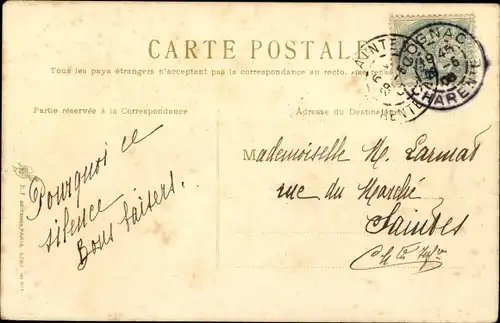 CARTE POSTALE
Tous les pays étrangers n'acceptent pas la correspondance au recto.
Partie réservée à la Correspondance
Adresse du Destinataire
COGNAC
CHARENTE
Pourquoi ce
silence
Bons baisers..
Mademoiselle M. Larmat
rue du Marché
Saintes
Ch te Infre